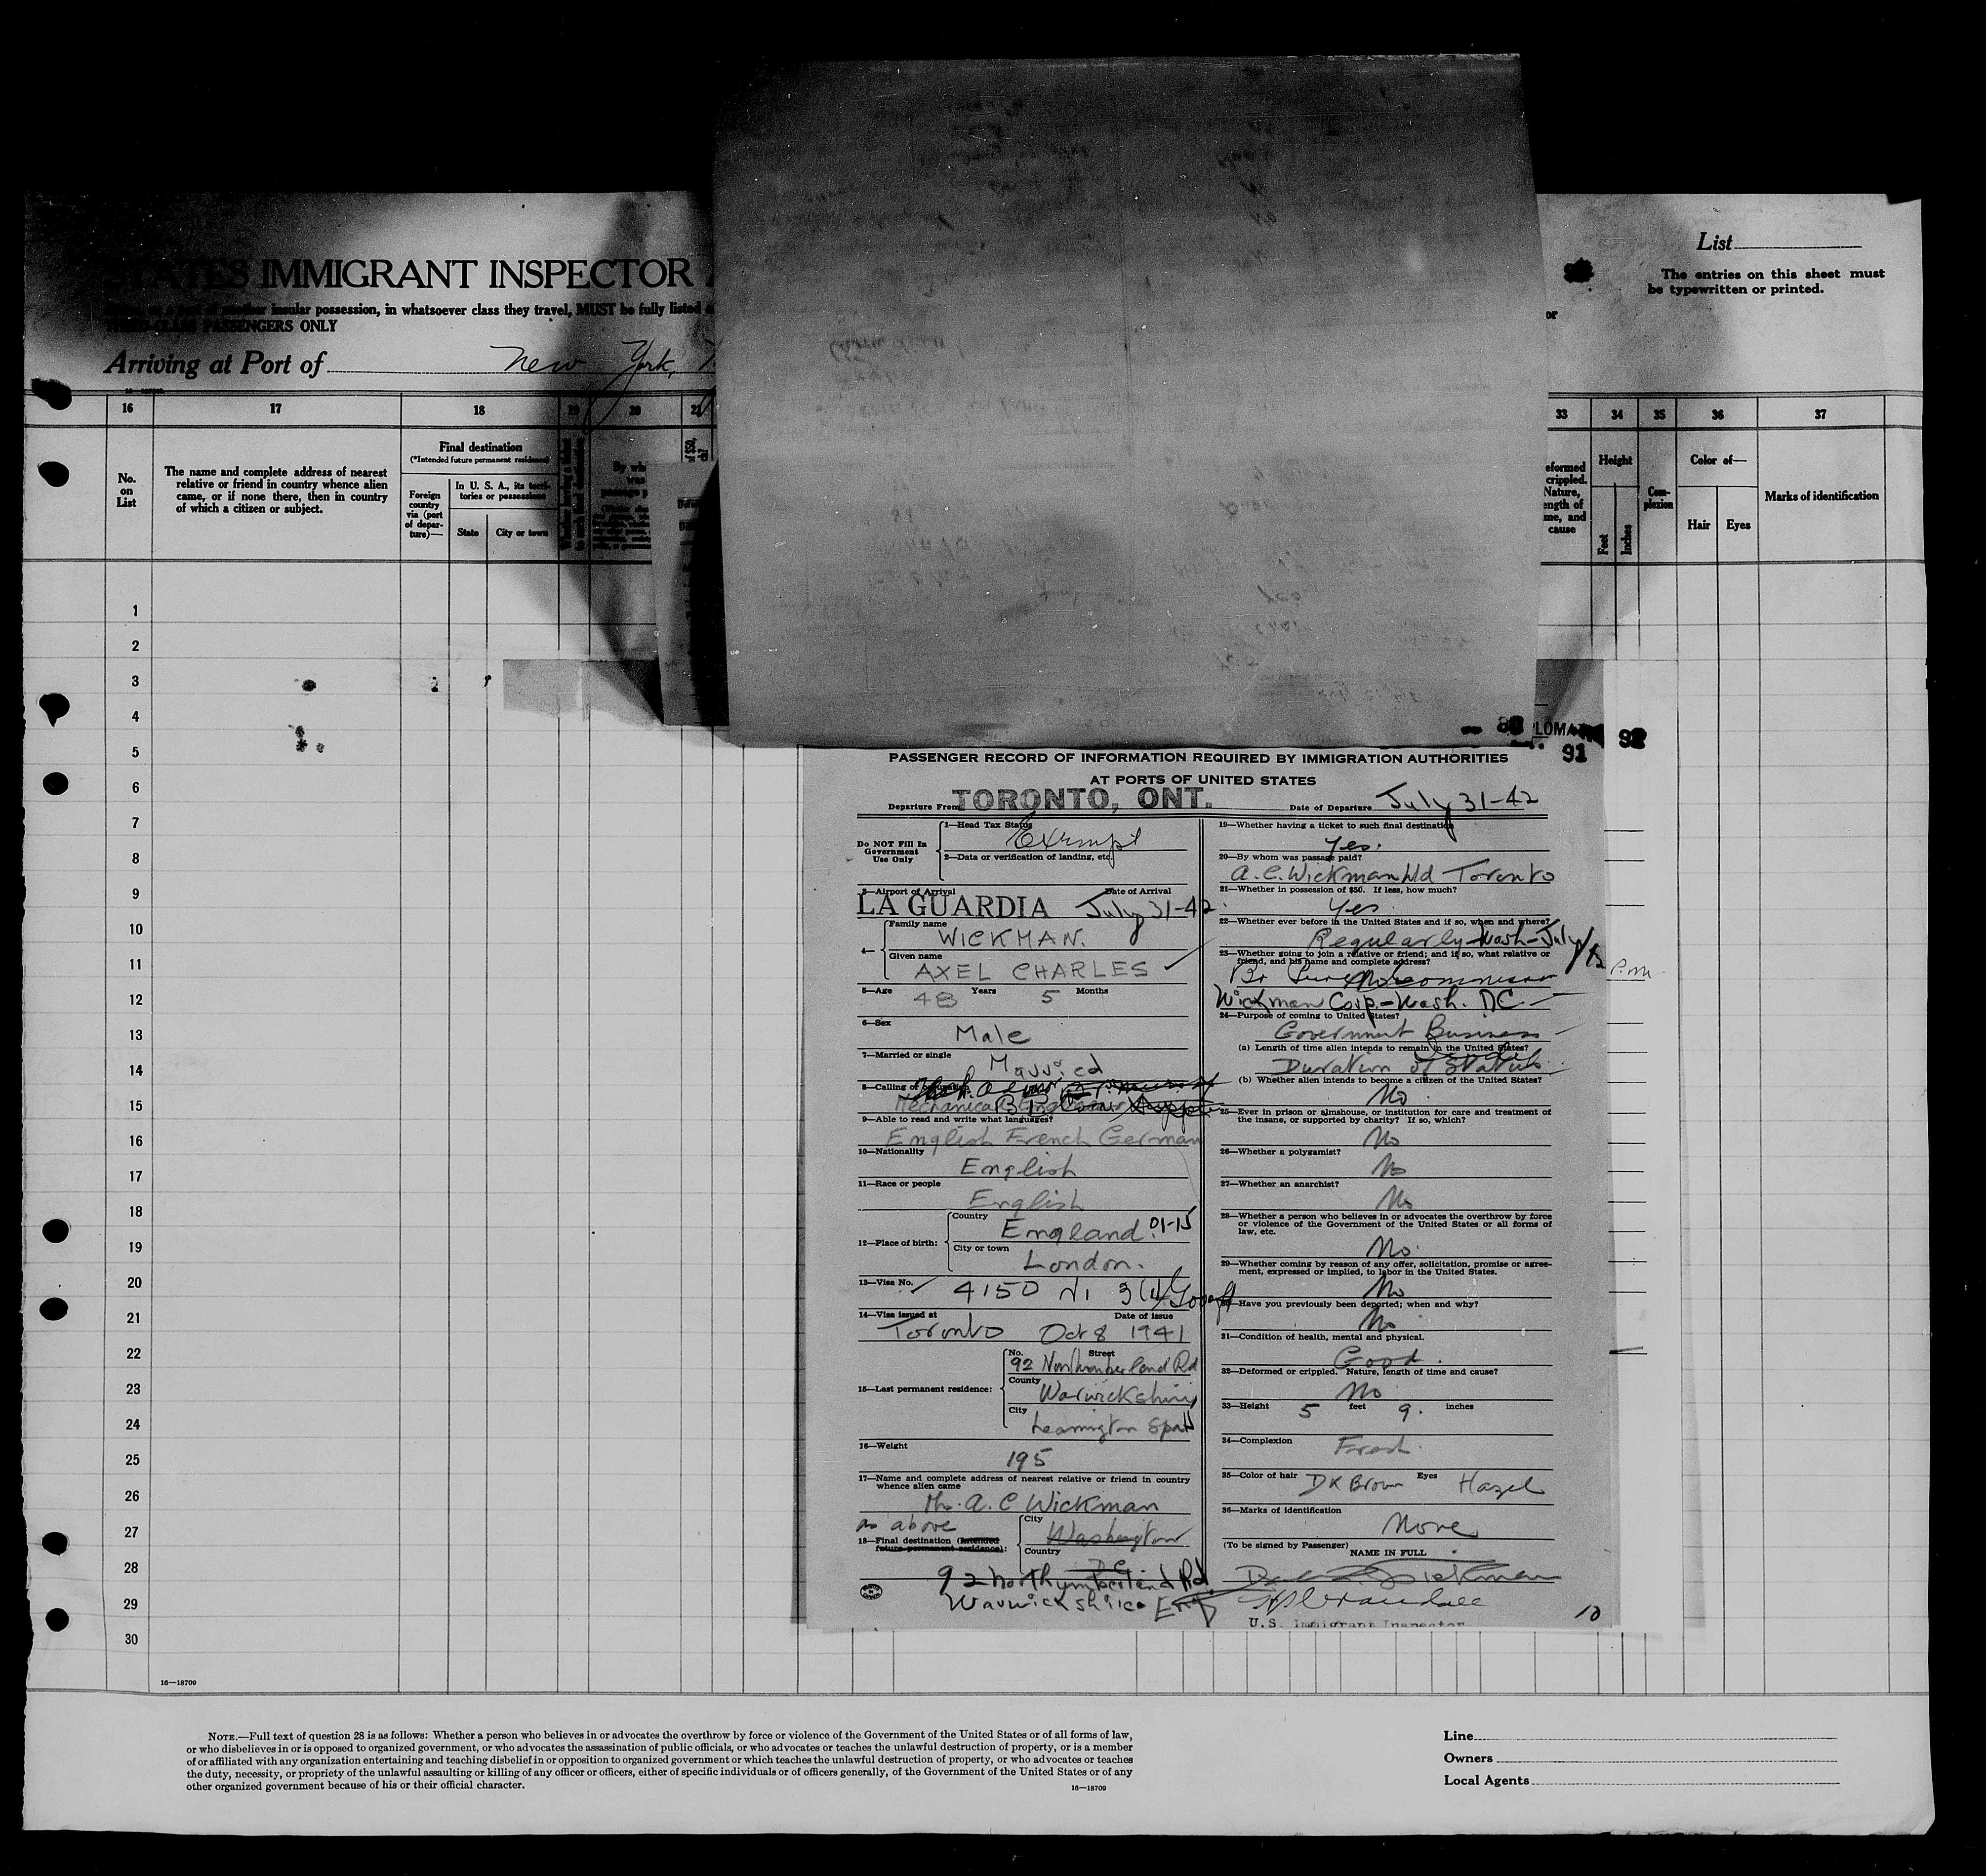 STATES IMMIGRANT INSPECTOR
insular possession, in whatsoever class they travel, MUST be fully listed
PASSENGERS ONLY
Arriving at Port of New York,
List
The entries on this sheet must
be typewritten or printed.
or
16 17 18 19 20 21 33 34 35 36 37
No.
on
List
The name and complete address of nearest
relative or friend in country whence alien
came, or if none there, then in country
of which a citizen or subject.
Final destination
(*Intended future permanent residence)
Foreign
country
via (port
of depar-
ture)—
In U. S. A., its terri-
tories or possessions
State
City or town
By wh
was
passage p
eformed
crippled.
Nature,
ength of
me, and
cause
Height
Feet
Inches
Com-
plexion
Color of—
Hair
Eyes
Marks of identification
1
2
3
4
5
6
7
8
9
10
11
12
13
14
15
16
17
18
19
20
21
22
23
24
25
26
27
28
29
30
16—18709
PLOMA
91 92
PASSENGER RECORD OF INFORMATION REQUIRED BY IMMIGRATION AUTHORITIES
AT PORTS OF UNITED STATES
Departure From TORONTO, ONT. Date of Departure July 31-42
Do NOT Fill In
Government
Use Only
1—Head Tax Status
Exempt
2—Data or verification of landing, etc.
3—Airport of Arrival Date of Arrival
LA GUARDIA July 31-42
4— Family name
WICKMAN.
Given name
AXEL CHARLES
5—Age 48 Years 5 Months
6—Sex
Male
7—Married or single
Married
8—Calling of occupation
Mechanical Engineer
9—Able to read and write what languages?
English French German
10—Nationality
English
11—Race or people
English
12—Place of birth:
Country
England. 01-15
City or town
London.
13—Visa No.
4150
14—Visa issued at Date of issue
Toronto Oct 8 1941
15—Last permanent residence:
No. Street
92 Northumberland Rd
County
Warwickshire
City
Leamington Spa
16—Weight
195
17—Name and complete address of nearest relative or friend in country
whence alien came
Mrs. A. C Wickman
as above
18—Final destination (Intended
future permanent residence):
City
Washington
Country
DC
92 Northumberland Rd
Warwickshire Eng
19—Whether having a ticket to such final destination
Yes.
20—By whom was passage paid?
A. C. Wickman Ltd Toronto
21—Whether in possession of $50. If less, how much?
Yes
22—Whether ever before in the United States and if so, when and where?
Regularly Wash-July/42
23—Whether going to join a relative or friend; and if so, what relative or
friend, and his name and complete address?
Wickman Corp-Wash. DC.
24—Purpose of coming to United States?
Government Business
(a) Length of time alien intends to remain in the United States?
Duration of Status
(b) Whether alien intends to become a citizen of the United States?
No
25—Ever in prison or almshouse, or institution for care and treatment of
the insane, or supported by charity? If so, which?
No
26—Whether a polygamist?
No
27—Whether an anarchist?
No
28—Whether a person who believes in or advocates the overthrow by force
or violence of the Government of the United States or all forms of
law, etc.
No.
29—Whether coming by reason of any offer, solicitation, promise or agree-
ment, expressed or implied, to labor in the United States.
No
30—Have you previously been deported; when and why?
No
31—Condition of health, mental and physical.
Good.
32—Deformed or crippled. Nature, length of time and cause?
No
33—Height 5 feet 9. inches
34—Complexion Fresh
35—Color of hair Dk Brown Eyes Hazel
36—Marks of identification
None
(To be signed by Passenger) NAME IN FULL
U.S. Immigrant Inspector
10
NOTE.—Full text of question 28 is as follows: Whether a person who believes in or advocates the overthrow by force or violence of the Government of the United States or of all forms of law,
or who disbelieves in or is opposed to organized government, or who advocates the assassination of public officials, or who advocates or teaches the unlawful destruction of property, or is a member
of or affiliated with any organization entertaining and teaching disbelief in or opposition to organized government or which teaches the unlawful destruction of property, or who advocates or teaches
the duty, necessity, or propriety of the unlawful assaulting or killing of any officer or officers, either of specific individuals or of officers generally, of the Government of the United States or of any
other organized government because of his or their official character.
16—18709
Line
Owners
Local Agents